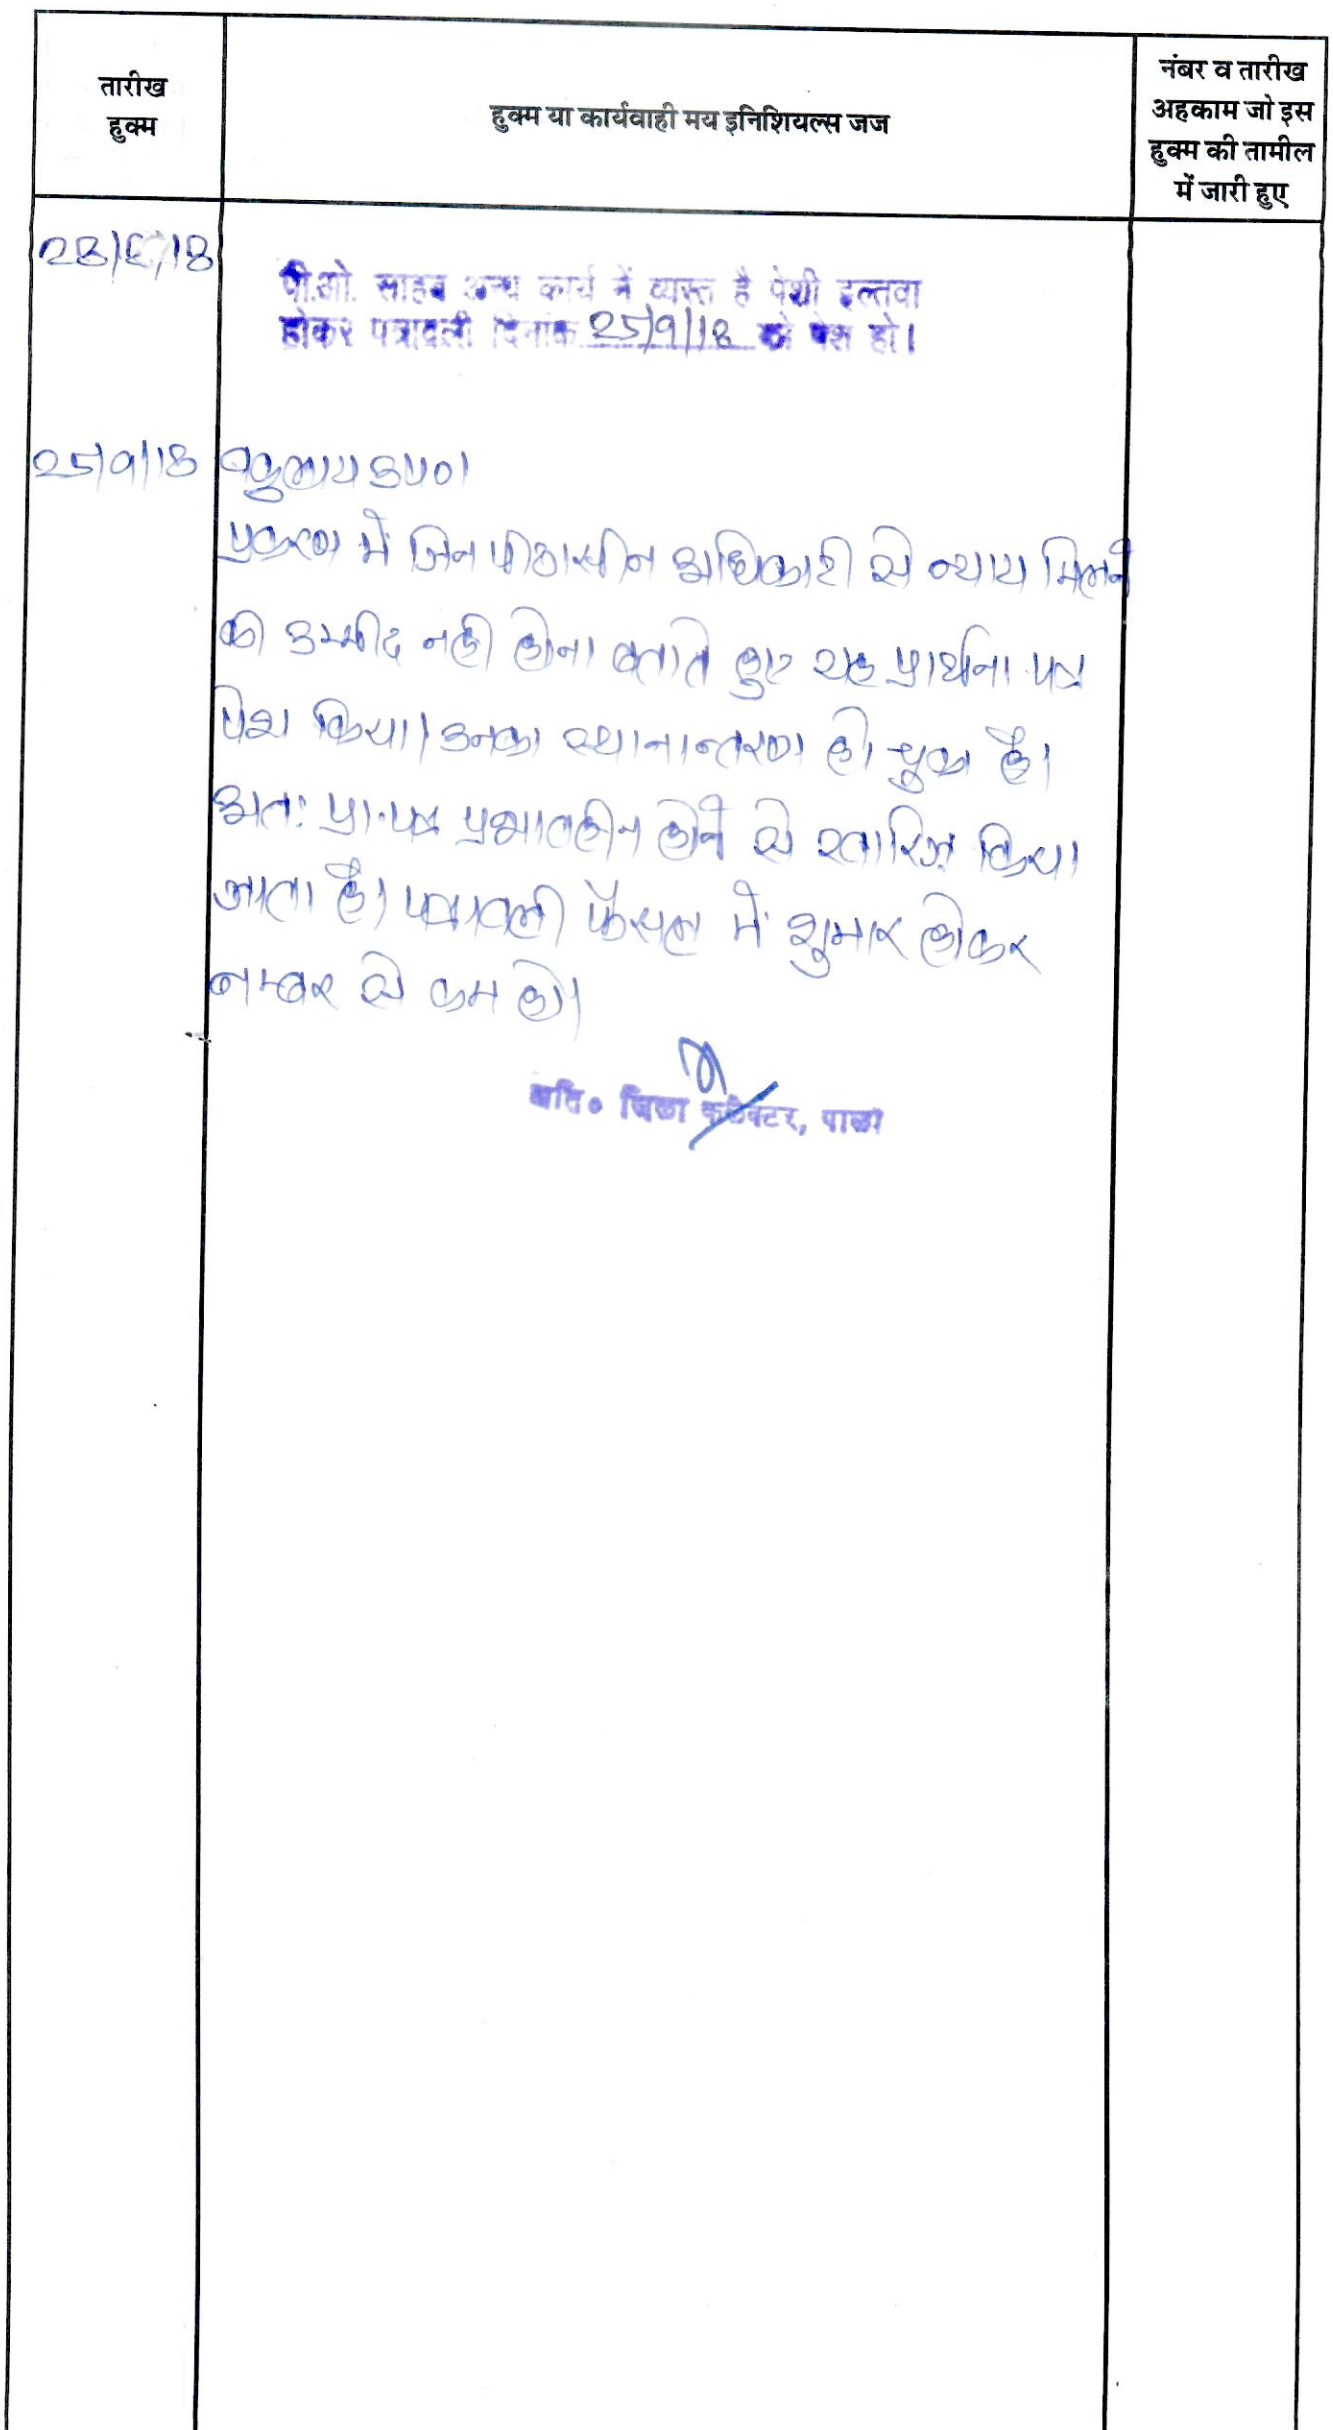 तारीख
हुक्म
हुक्म या कार्यवाही मय इनिशियल्स जज
नंबर व तारीख
अहकाम जो इस
हुक्म की तामील
में जारी हुए
पी.ओ. साहब अन्य कार्य में व्यस्त है पेशी इल्तवा
होकर पत्रावली दिनांक 25/9/18 को पेश हो।
25/9/18 वकुलाय उप०।
प्रकरण में जिन पीठासीन अधिकारी से न्याय मिलने
की उम्मीद नही होना बताते हुए यह प्रार्थना पत्र
पेश किया। उनका स्थानान्तरण हो चुका है।
अतः प्रा.पत्र प्रभावहीन होने से खारिज किया
जाता है। पत्रावली फैसल में शुमार होकर
नम्बर से कम हो।
अति० जिला कलेक्टर, पाली